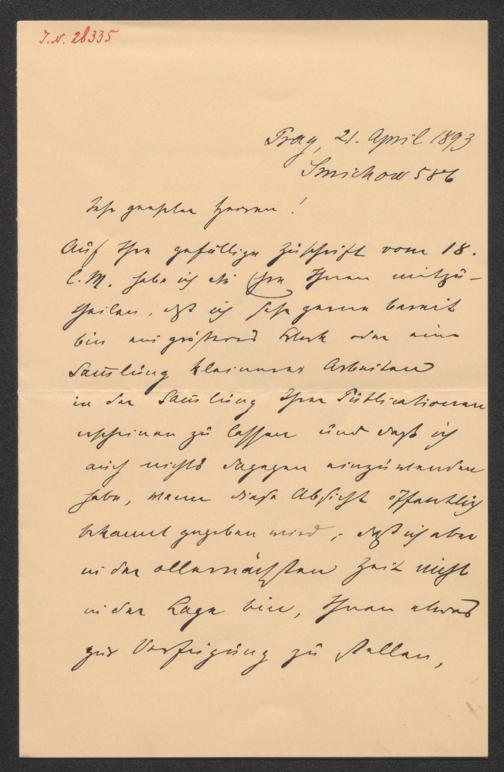 J.N. 28335
Prag, 21. April 1893
Smichow 586
Sehr geehrte Herren!
Auf Ihre gefällige Zuschrift vom 18.
l. M. habe ich die Ehre Ihnen mitzu-
theilen, daß ich sehr gerne bereit
bin ein größeres Werk oder eine
Sam̅lung kleinerer Arbeiten
in der Sam̅lung Ihrer Publicationen
erscheinen zu lassen und daß ich
auch nichts dagegen einzuwenden
habe, wenn diese Absicht öffentlich
bekannt gegeben wird; daß ich aber
in der allernächsten Zeit nicht
in der Lage bin, Ihnen etwas
zur Verfügung zu stellen,